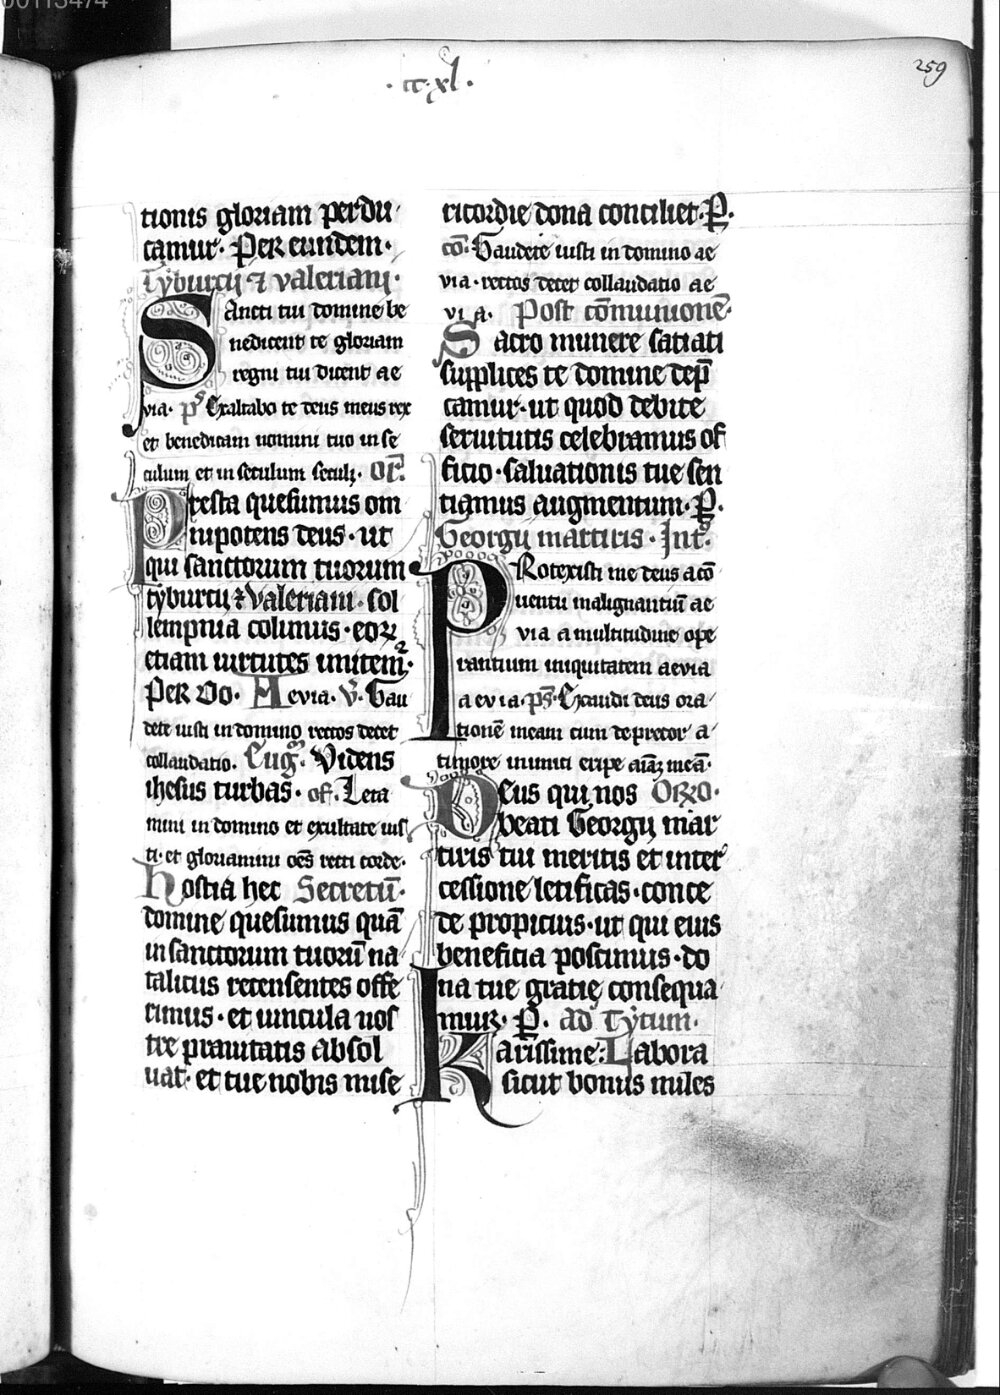 00113474
·cc·xl·
259
tionis gloriam perdu
camur· Per eundem·
Tyburcij ⁊ valeriani·
Sancti tui domine be
nedicent te gloriam
regni tui dicent ae
via· ps Exaltabo te deus meus rex
et benedicam nomini tuo in se
culum et in seculum seculi· Or̄.
Presta quesumus om
nipotens deus· ut
qui sanctorum tuorum
tyburcij ⁊ Valeriani· sol
lempnia colimus· eoꝝ
etiam uirtutes imitem̄·
Per Do· Aevia· v̄· Gau
dete iusti in domino rectos decet
collaudatio· Eug̅· Videns
ihesus turbas· of· Leta
mini in domino et exultate ius
ti· et gloriamini oēs recti corde·
Hostia hec Secretū·
domine quesumus quā
in sanctorum tuorū na
taliciis recensentes offe
rimus· et uincula nos
tre prauitatis absol
uat· et tue nobis mise
ricordie dona conciliet· P̄·
cō· Gaudete iusti in domino ae
via· rectos decet collaudatio ae
via· Post cōmunionē·
Sacro munere satiati
supplices te domine dep̄
camur· ut quod debite
seruitutis celebramus of
ficio· saluationis tue sen
tiamus augmentum· P̄·
Georgij martiris· Int̄·
Protexisti me deus a cō
uentu malignantiū ae
via a multitudine ope
rantium iniquitatem aevia
aevia· ps̄· Exaudi deus ora
tionē meam cum deprecor a
timore inimici eripe aīaꝫ meā·
Deus qui nos Orꝛo·
beati Georgij mar
tiris tui meritis et inter
cessione letificas· conce
de propicius· ut qui eius
beneficia poscimus· do
na tue gratie consequa
mur· P̄· ad Tytum·
Karissime: Labora
sicut bonus miles